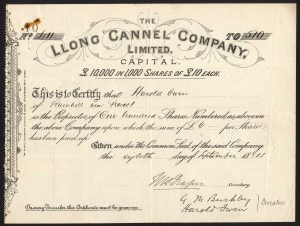 THE
No 411 TO 510
LLONG CANNEL COMPANY,
LIMITED.
CAPITAL.
£10,000 IN 1,000 SHARES OF £10 EACH.
This is to Certify that Harold Owen
of
is the Proprietor of One hundred Shares Numbered as above in
the above Company upon which the sum of £6 per Share
has been paid up
Given under the Common Seal of the said Company
the eighth day of September 18
Secretary
G. M. Bushby
Harold Owen
Directors
On every Transfer this Certificate must be given up.